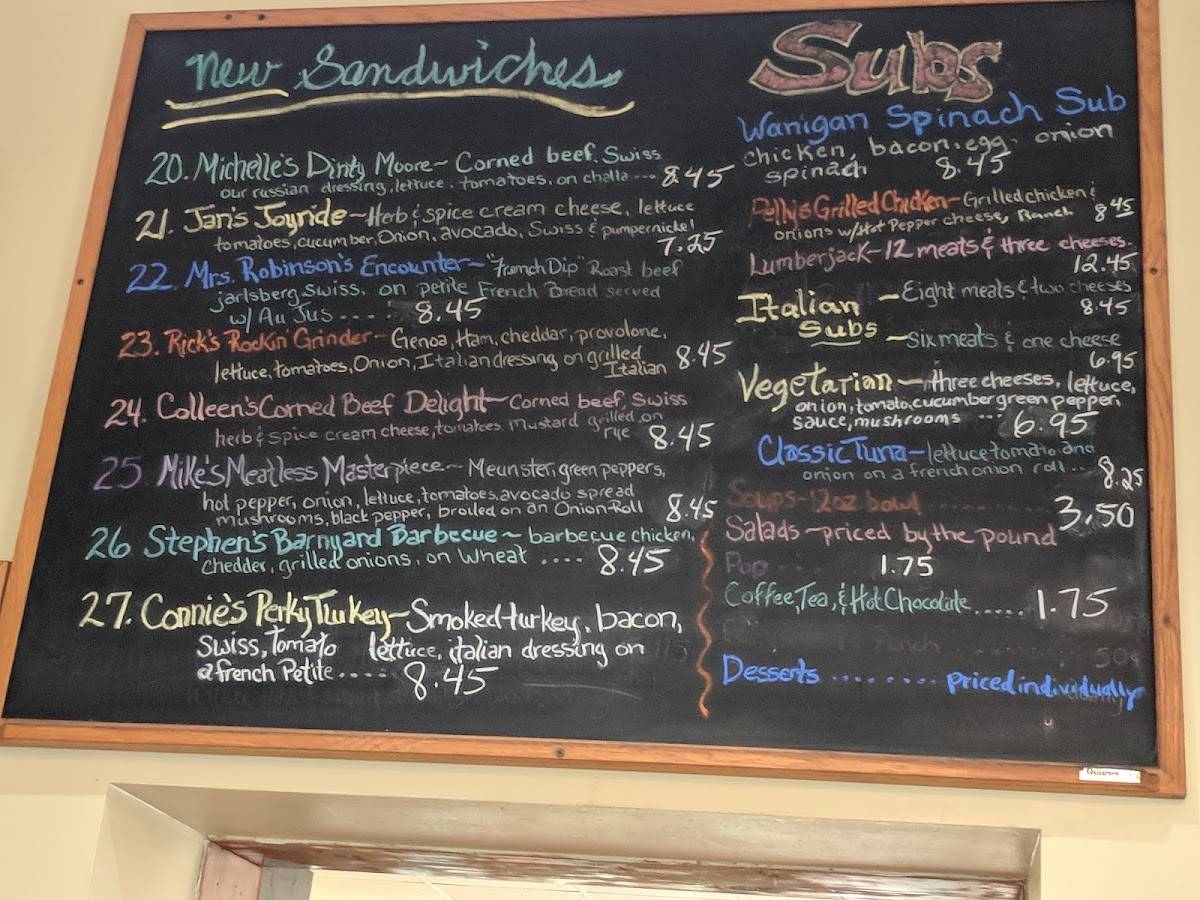 New Sandwiches
20. Michelle's Dinty Moore~ Corned beef. Swiss
our russian dressing, lettuce, tomatoes, on challa --- 8.45
21. Jan's Joyride~Herb & spice cream cheese, lettuce
tomatoes, cucumber, Onion, avocado, Swiss & pumpernickel
7.25
22. Mrs. Robinson's Encounter~ "French Dip" Roast beef
jarlsberg swiss, on petite French Bread served
w/ Au Jus .... 8.45
23. Rick's Rockin' Grinder~ Genoa, Ham, cheddar, provolone,
lettuce, tomatoes, Onion, Italian dressing on grilled
Italian 8.45
24. Colleen's Corned Beef Delight~ Corned beef, Swiss
herb & spice cream cheese, tomatoes, mustard grilled on
rye 8.45
25 Mike's Meatless Masterpiece~ Meunster, green peppers,
hot pepper, onion, lettuce, tomatoes, avocado spread
mushrooms, black pepper, broiled on an Onion Roll 8.45
26 Stephen's Barnyard Barbecue ~ barbecue chicken,
chedder, grilled onions, on wheat .... 8.45
27. Connie's Perky Turkey~Smoked turkey, bacon,
Swiss, Tomato lettuce, italian dressing on
a french Petite .... 8.45
Subs
Wanigan Spinach Sub
chicken, bacon, egg, onion
spinach 8.45
Pelly's Grilled Chicken~Grilled chicken &
onions w/Hot Pepper cheese, Ranch 8.45
Lumberjack-12 meats & three cheeses-
12.45
Italian ~Eight meats & two cheeses
8.45
Subs ~Six meats & one cheese
6.95
Vegetarian~ three cheeses, lettuce,
onion, tomato, cucumber green pepper,
sauce, mushrooms ... 6.95
Classic Tuna~lettuce tomato and
onion on a french onion roll .. 8.25
Soups~12oz bowl .......... 3.50
Salads ~priced by the pound
Pop .... 1.75
Coffee, Tea, & Hot Chocolate ..... 1.75
50¢
Desserts ........ priced individually